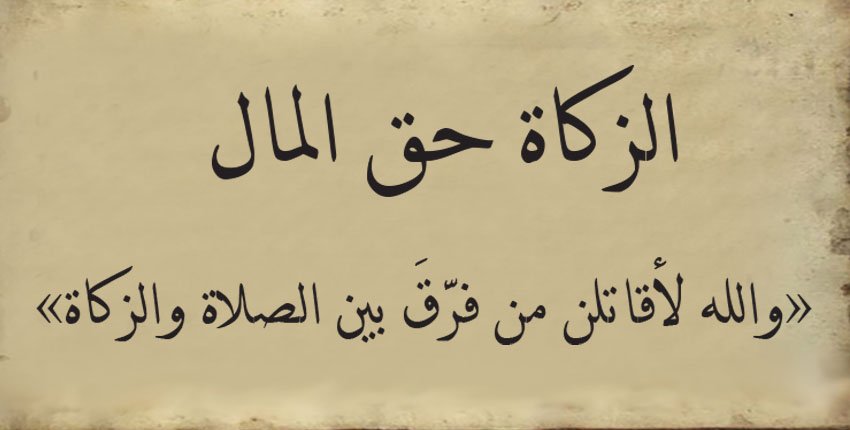 الزكاة حق المال
«والله لأقاتلن من فرّقَ بين الصلاة والزكاة»